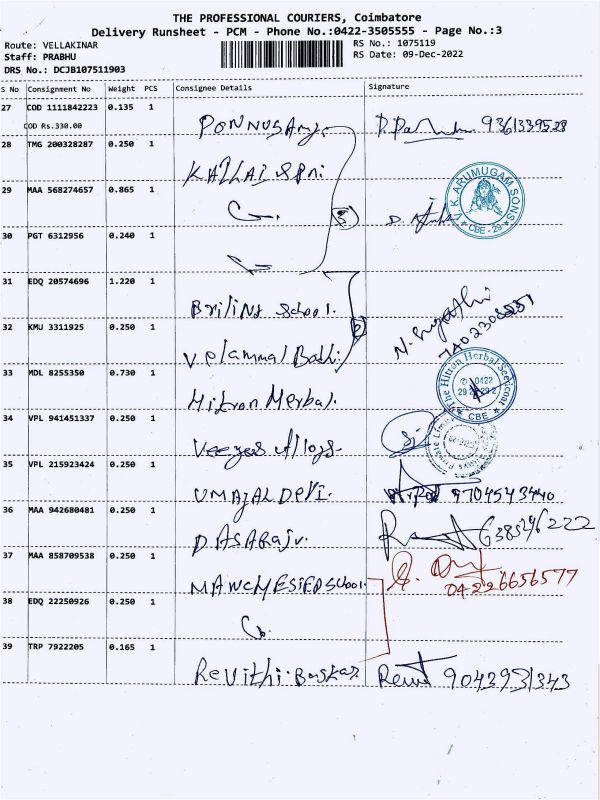 THE PROFESSIONAL COURIERS, Coimbatore
Delivery Runsheet - PCM - Phone No.:0422-3505555 - Page No.:3
Route: VELLAKINAR RS No.: 1075119
Staff: PRABHU RS Date: 09-Dec-2022
DRS No.: DCJB107511903
S No Consignment No Weight PCS Consignee Details Signature
27 COD 1111842223 0.135 1
COD Rs.330.00 PONNUSAmy 9361339528
28 TMG 200328287 0.250 1
29 MAA 568274657 0.865 1
K. ARUMUGAM SONS
CBE - 29
30 PGT 6312956 0.240 1
31 EDQ 20574696 1.220 1
School.
32 KMU 3311925 0.250 1
Velammal Bodhi
33 MDL 8255350 0.730 1
The Hitron Herbal
0422
CBE
Hitron Herbal.
34 VPL 941451337 0.250 1
Veeyes Alloys.
35 VPL 215923424 0.250 1
UMAJAL DEVI. 9704543440
36 MAA 942680481 0.250 1
DASARAJU. 6385246222
37 MAA 858709538 0.250 1
MANCHESTER School.
04226656577
38 EDQ 22250926 0.250 1
39 TRP 7922205 0.165 1
Revithi-Baskar 9043951343